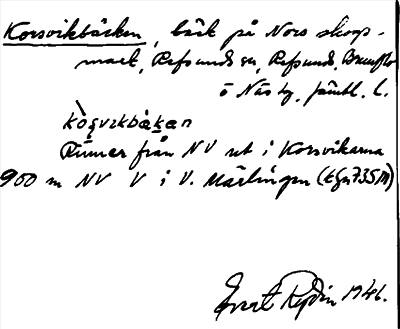 Korsvikbäcken, bäck på Nors skogs-
mark, Refsunds sn, Refsunds, Brunflo
o Näs tg, Jämtl. l.
Rinner från NV ut i Korsvikarna
900 m NV V i V. Märlingen (tfn 735 M)
Evert Rydin 1946.